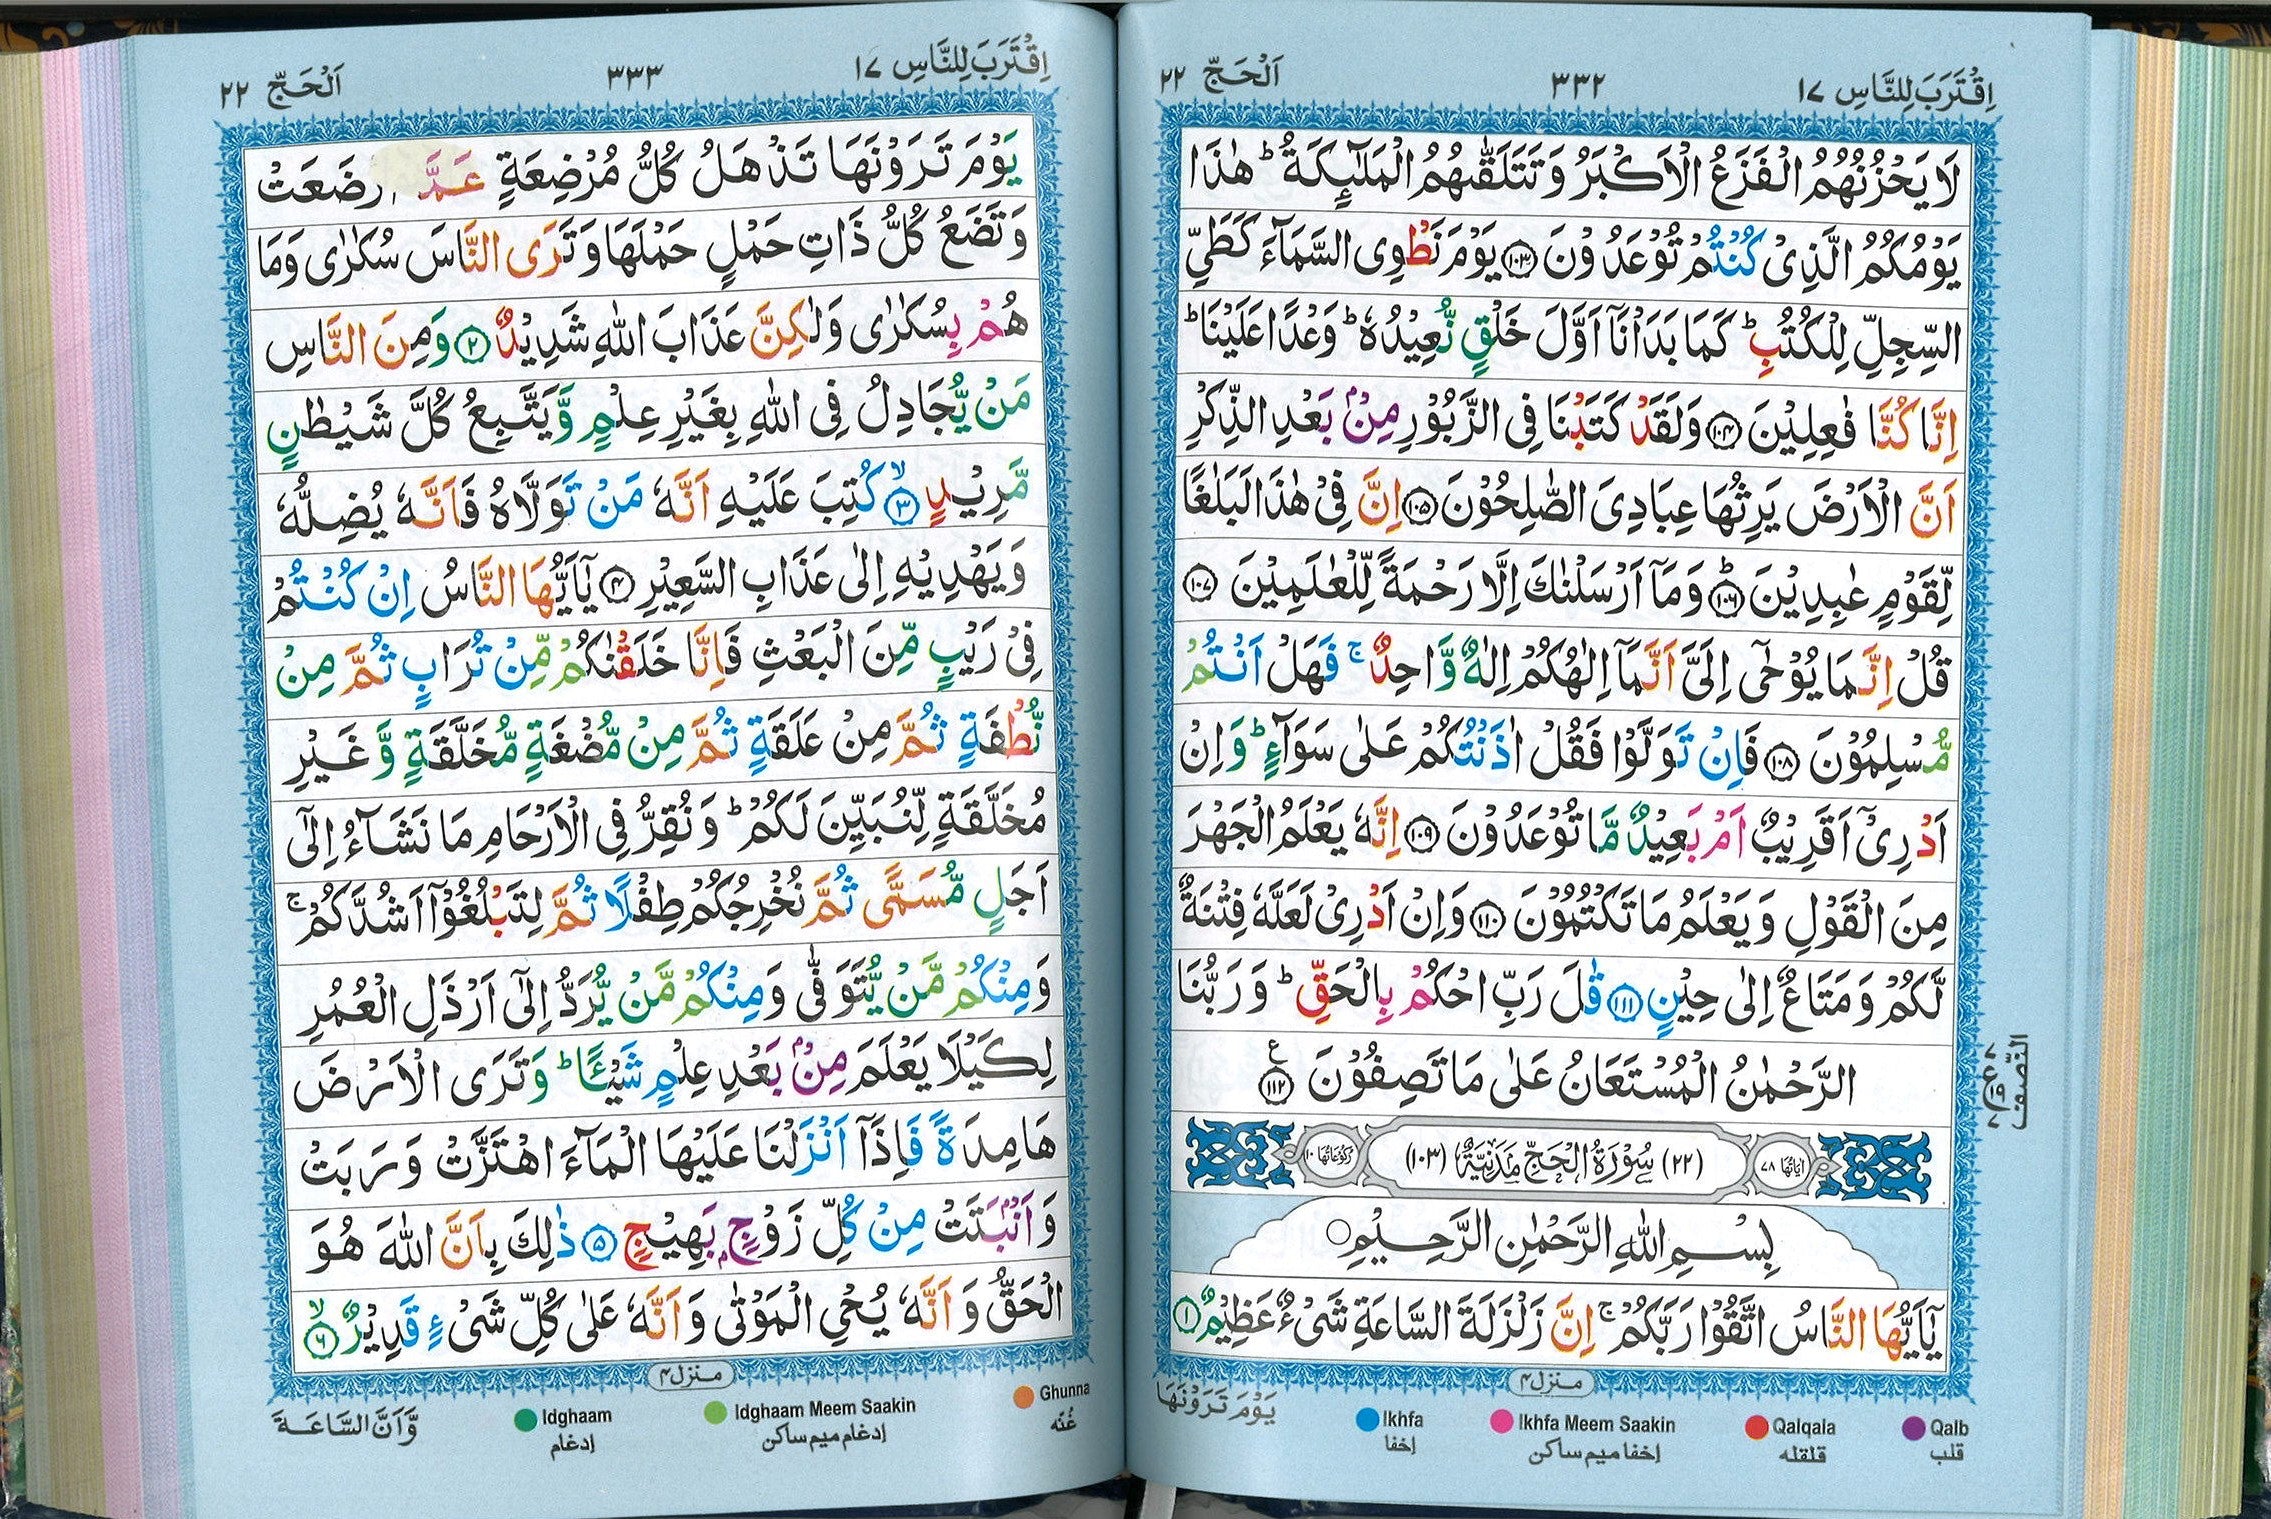 اِقْتَرَبَ لِلنَّاسِ ١٧
٣٣٢
اَلْحَجّ ٢٢
لَا يَحْزُنُهُمُ الْفَزَعُ الْاَكْبَرُ وَتَتَلَقّٰىهُمُ الْمَلٰٓئِكَةُ ؕ هٰذَا
يَوْمُكُمُ الَّذِىْ كُنْتُمْ تُوْعَدُوْنَ ﴿۱۰۳﴾ يَوْمَ نَطْوِى السَّمَآءَ كَطَىِّ
السِّجِلِّ لِلْكُتُبِ ؕ كَمَا بَدَاْنَاۤ اَوَّلَ خَلْقٍ نُّعِيْدُهٗ ؕ وَعْدًا عَلَيْنَا ؕ
اِنَّا كُنَّا فٰعِلِيْنَ ﴿۱۰۴﴾ وَلَقَدْ كَتَبْنَا فِى الزَّبُوْرِ مِنْۢ بَعْدِ الذِّكْرِ
اَنَّ الْاَرْضَ يَرِثُهَا عِبَادِىَ الصّٰلِحُوْنَ ﴿۱۰۵﴾ اِنَّ فِىْ هٰذَا لَبَلٰغًا
لِّقَوْمٍ عٰبِدِيْنَ ؕ ﴿۱۰۶﴾ وَمَاۤ اَرْسَلْنٰكَ اِلَّا رَحْمَةً لِّلْعٰلَمِيْنَ ﴿۱۰۷﴾
قُلْ اِنَّمَا يُوْحٰۤى اِلَىَّ اَنَّمَاۤ اِلٰهُكُمْ اِلٰهٌ وَّاحِدٌ ۚ فَهَلْ اَنْتُمْ
مُّسْلِمُوْنَ ﴿۱۰۸﴾ فَاِنْ تَوَلَّوْا فَقُلْ اٰذَنْتُكُمْ عَلٰى سَوَآءٍ ؕ وَاِنْ
اَدْرِىْۤ اَقَرِيْبٌ اَمْ بَعِيْدٌ مَّا تُوْعَدُوْنَ ﴿۱۰۹﴾ اِنَّهٗ يَعْلَمُ الْجَهْرَ
مِنَ الْقَوْلِ وَيَعْلَمُ مَا تَكْتُمُوْنَ ﴿۱۱۰﴾ وَاِنْ اَدْرِىْ لَعَلَّهٗ فِتْنَةٌ
لَّكُمْ وَمَتَاعٌ اِلٰى حِيْنٍ ﴿۱۱۱﴾ قٰلَ رَبِّ احْكُمْ بِالْحَقِّ ؕ وَرَبُّنَا
الرَّحْمٰنُ الْمُسْتَعَانُ عَلٰى مَا تَصِفُوْنَ ﴿۱۱۲﴾ ع
النِّصْف
اٰيَاتُهَا ٧٨
(٢٢) سُوْرَةُ الْحَجِّ مَدَنِيَّةٌ (١٠٣)
رُكُوْعَاتُهَا ١٠
بِسْمِ اللّٰهِ الرَّحْمٰنِ الرَّحِيْمِ
يٰۤاَيُّهَا النَّاسُ اتَّقُوْا رَبَّكُمْ ۚ اِنَّ زَلْزَلَةَ السَّاعَةِ شَىْءٌ عَظِيْمٌ ﴿۱﴾
منزل ٤
يَوْمَ تَرَوْنَهَا
Ikhfa
اِخفا
Ikhfa Meem Saakin
اِخفا ميم ساكن
Qalqala
قلقله
Qalb
قلب
اِقْتَرَبَ لِلنَّاسِ ١٧
٣٣٣
اَلْحَجّ ٢٢
يَوْمَ تَرَوْنَهَا تَذْهَلُ كُلُّ مُرْضِعَةٍ عَمَّاۤ اَرْضَعَتْ
وَتَضَعُ كُلُّ ذَاتِ حَمْلٍ حَمْلَهَا وَتَرَى النَّاسَ سُكٰرٰى وَمَا
هُمْ بِسُكٰرٰى وَلٰكِنَّ عَذَابَ اللّٰهِ شَدِيْدٌ ﴿۲﴾ وَمِنَ النَّاسِ
مَنْ يُّجَادِلُ فِى اللّٰهِ بِغَيْرِ عِلْمٍ وَّيَتَّبِعُ كُلَّ شَيْطٰنٍ
مَّرِيْدٍ ۙ ﴿۳﴾ كُتِبَ عَلَيْهِ اَنَّهٗ مَنْ تَوَلَّاهُ فَاَنَّهٗ يُضِلُّهٗ
وَيَهْدِيْهِ اِلٰى عَذَابِ السَّعِيْرِ ﴿۴﴾ يٰۤاَيُّهَا النَّاسُ اِنْ كُنْتُمْ
فِىْ رَيْبٍ مِّنَ الْبَعْثِ فَاِنَّا خَلَقْنٰكُمْ مِّنْ تُرَابٍ ثُمَّ مِنْ
نُّطْفَةٍ ثُمَّ مِنْ عَلَقَةٍ ثُمَّ مِنْ مُّضْغَةٍ مُّخَلَّقَةٍ وَّغَيْرِ
مُخَلَّقَةٍ لِّنُبَيِّنَ لَكُمْ ؕ وَنُقِرُّ فِى الْاَرْحَامِ مَا نَشَآءُ اِلٰٓى
اَجَلٍ مُّسَمًّى ثُمَّ نُخْرِجُكُمْ طِفْلًا ثُمَّ لِتَبْلُغُوْۤا اَشُدَّكُمْ ۚ
وَمِنْكُمْ مَّنْ يُّتَوَفّٰى وَمِنْكُمْ مَّنْ يُّرَدُّ اِلٰٓى اَرْذَلِ الْعُمُرِ
لِكَيْلَا يَعْلَمَ مِنْۢ بَعْدِ عِلْمٍ شَيْـًٔا ؕ وَتَرَى الْاَرْضَ
هَامِدَةً فَاِذَاۤ اَنْزَلْنَا عَلَيْهَا الْمَآءَ اهْتَزَّتْ وَرَبَتْ
وَاَنْۢبَتَتْ مِنْ كُلِّ زَوْجٍۢ بَهِيْجٍ ﴿۵﴾ ذٰلِكَ بِاَنَّ اللّٰهَ هُوَ
الْحَقُّ وَاَنَّهٗ يُحْىِ الْمَوْتٰى وَاَنَّهٗ عَلٰى كُلِّ شَىْءٍ قَدِيْرٌ ۙ ﴿۶﴾
منزل ٤
وَّاَنَّ السَّاعَةَ
Idghaam
اِدغام
Idghaam Meem Saakin
اِدغام ميم ساكن
Ghunna
غُنّه